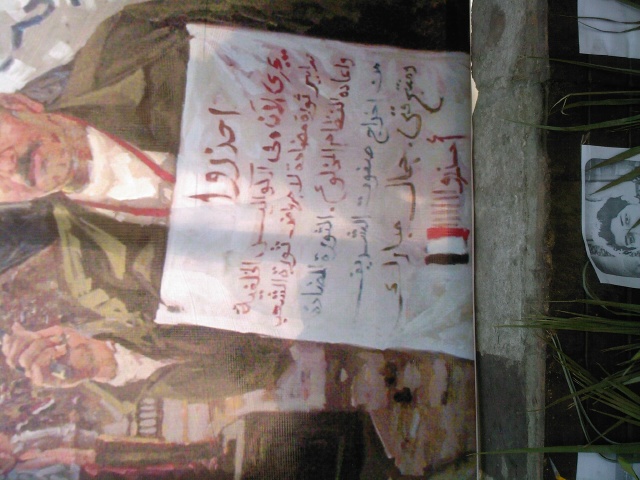 احذروا
يجرى الآن فى الكواليس الخلفية
تدابير ثورة مضادة لاجهاض ثورة الشعب
واعادة النظام المخلوع. الثورة المضادة
من اخراج صفوت الشريف
جمال مبارك
احذروا !!!!!!